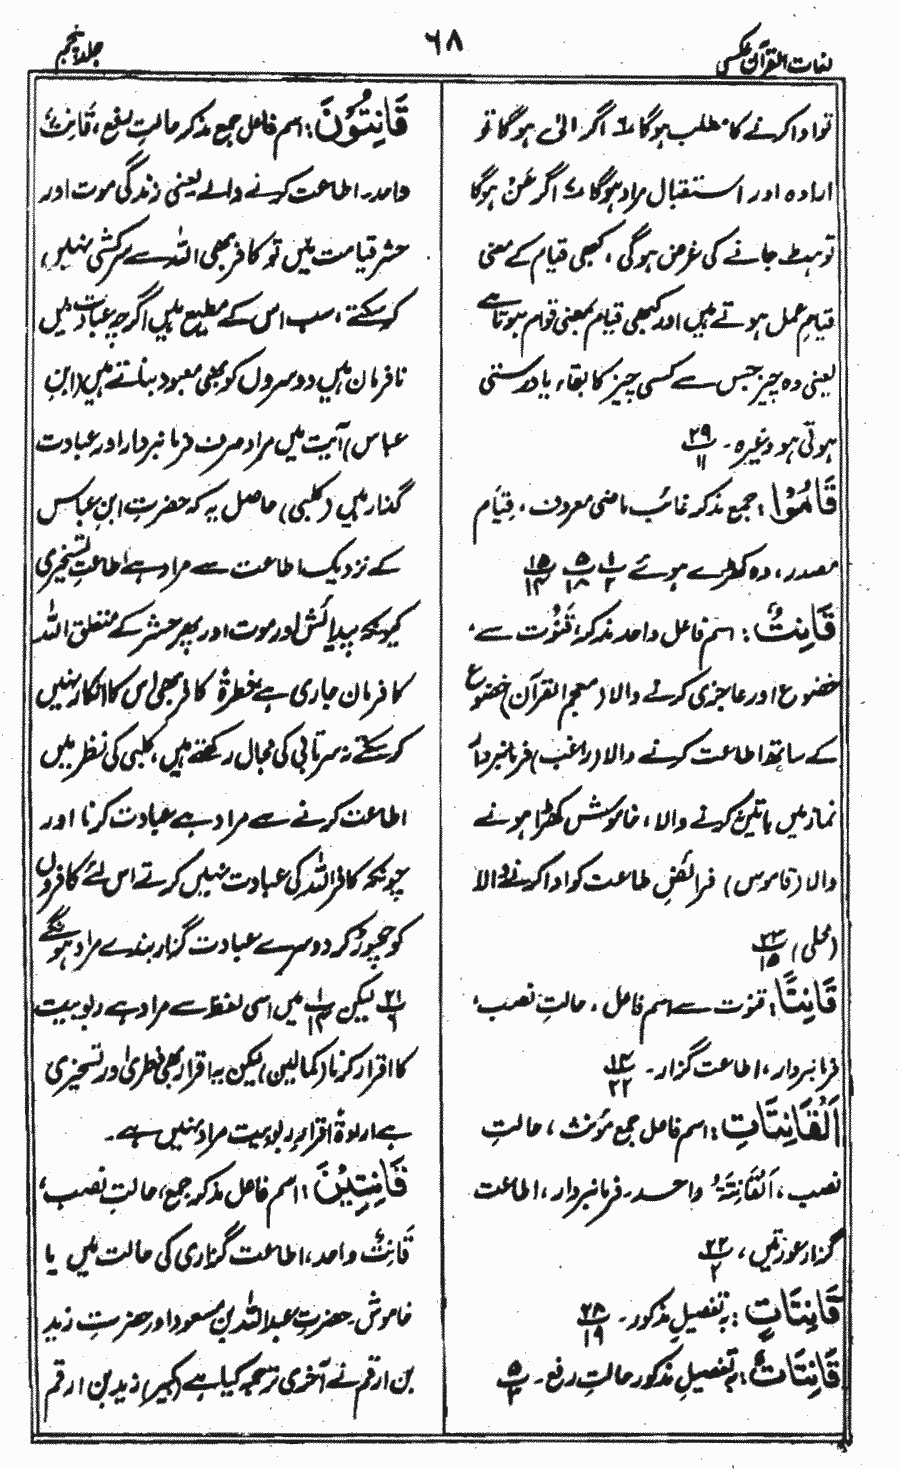 لغات القرآن عکسی
۶۸
جلد پنجم
تو ادا کرنے کا مطلب ہوگا ۶ اگر الیٰ ہوگا تو
ارادہ اور استقبال مراد ہوگا ۷ اگر عَنْ ہوگا
تو ہٹ جانے کی غرض ہوگی، کبھی قیام کے معنی
قیامِ عمل ہوتے ہیں اور کبھی قیام بمعنی قوام ہوتا ہے
یعنی وہ چیز جس سے کسی چیز کا بقاء یا درستی
ہوتی ہو وغیرہ۔ ۲۹/۱۱
قَامُوْا: جمع مذکر غائب ماضی معروف، قِیَام
مصدر، وہ کھڑے ہوئے ۱/۲ ۵/۱۸ ۱۵/۱۴
قَانِتٌ: اسم فاعل واحد مذکر، قُنُوْت سے،
خضوع اور عاجزی کرنے والا (معجم القرآن) خضوع
کے ساتھ اطاعت کرنے والا (راغب) فرمانبردار
نماز میں باتیں نہ کرنے والا، خاموش کھڑا ہونے
والا (قاموس) فرائضِ طاعت کو ادا کرنے والا
(محلی) ۲۳/۱۵
قَانِتًا: قنوت سے اسم فاعل، حالتِ نصب،
فرمانبردار، اطاعت گزار۔ ۱۴/۲۲
اَلْقَانِتَاتِ: اسم فاعل جمع مؤنث، حالتِ
نصب، اَلْقَانِتَةُ واحد۔ فرمانبردار، اطاعت
گزار عورتیں، ۲۲/۲
قَانِتَاتٍ: بہ تفصیلِ مذکور۔ ۲۸/۱۹
قَانِتَاتٌ: بہ تفصیلِ مذکور حالتِ رفع۔ ۵/۳
قَانِتُوْنَ: اسم فاعل جمع مذکر حالتِ رفع، قَانِتٌ
واحد۔ اطاعت کرنے والے یعنی زندگی موت اور
حشر قیامت میں تو کافر بھی اللہ سے سرکشی نہیں
کر سکتے، سب اس کے مطیع ہیں اگرچہ عبادت میں
نافرمان ہیں دوسروں کو بھی معبود بناتے ہیں (ابنِ
عباس) آیت میں مراد صرف فرمانبردار اور عبادت
گذار ہیں (کلبی) حاصل یہ کہ حضرتِ ابنِ عباس
کے نزدیک اطاعت سے مراد ہے اطاعتِ تسخیری
کیونکہ پیدائش اور موت اور پھر حشر کے متعلق اللہ
کا فرمان جاری ہے فطرۃً کافر بھی اس کا انکار نہیں
کر سکتے نہ سرتابی کی مجال رکھتے ہیں، کلبی کی نظر میں
اطاعت کرنے سے مراد ہے عبادت کرنا اور
چونکہ کافر اللہ کی عبادت نہیں کرتے اس لئے کافروں
کو چھوڑ کر دوسرے عبادت گزار بندے مراد ہونگے
۲۱/۶ لیکن ۱/۱۴ میں اسی لفظ سے مراد ہے ربوبیت
کا اقرار کرنا (کمالین) لیکن یہ اقرار بھی فطری اور تسخیری
ہے ارادۃً اقرارِ ربوبیت مراد نہیں ہے۔
قَانِتِیْنَ: اسم فاعل مذکر جمع، حالتِ نصب،
قَانِتٌ واحد، اطاعت گزاری کی حالت میں یا
خاموش۔ حضرتِ عبداللہ بن مسعود اور حضرت زید
بن ارقم نے آخری ترجمہ کیا ہے (کبیر) زید بن ارقم